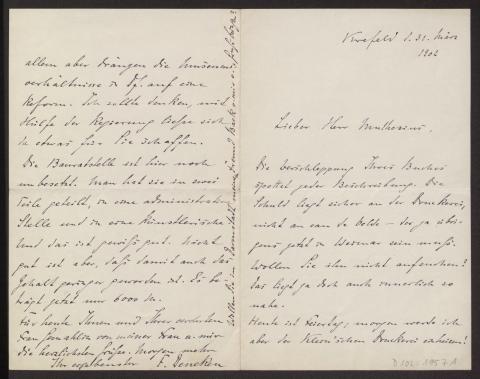 Krefeld d. 31. März
1902
Lieber Herr Muthesius,
Die Verschleppung Ihres Buches
spottet jeder Beschreibung. Die
Schuld liegt sicher an der Druckerei,
nicht an van de Velde – der ja übri-
gens jetzt in Weimar sein muß.
Wollen Sie ihn nicht aufsuchen?
Das liegt ja doch auch innerlich so
nahe.
Heute ist Feiertag; morgen werde ich
aber der Kleinschen Druckerei einheizen!
D 102-1957 A
allem aber drängen die Museums
verhältnisse in Df. auf eine
Reform. Ich sollte denken, mit
Hülfe der Regierung ließe sich
so etwas für Sie schaffen.
Die Bauratstelle ist hier noch
unbesetzt. Man hat sie in zwei
Teile geteilt, in eine administrative
Stelle und in eine künstlerische
Und das ist gewiß gut. Nicht
gut ist aber, daß damit auch das
Gehalt geringer geworden ist. Es be-
trägt jetzt nur 6000 M.
Für heute Ihnen und Ihrer verehrten
Frau Gemahlin von meiner Frau u. mir
die herzlichsten Grüße. Morgen mehr
Ihr ergebenster F. Deneken
Wollen Sie in Darmstadt meinen Freund Back